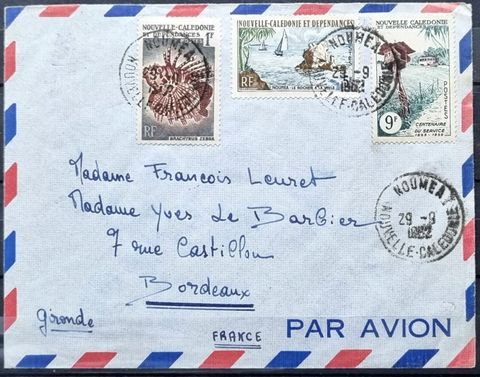 NOUVELLE-CALEDONIE
ET DEPENDANCES 1F
RF
BRACHYRUS ZEBRA
NOUVELLE-CALEDONIE ET DEPENDANCES
RF
NOUVELLE CALEDONIE
ET DEPENDANCES
RF
POSTES
9F
CENTENAIRE
DU SERVICE
NOUMEA
29-9
NOUVELLE-CALEDONIE
NOUMEA
29-9
1962
NOUVELLE-CALEDONIE
Madame François Leuret
Madame Yves Le Barbier
7 rue Castillon
Bordeaux
Gironde
FRANCE
PAR AVION